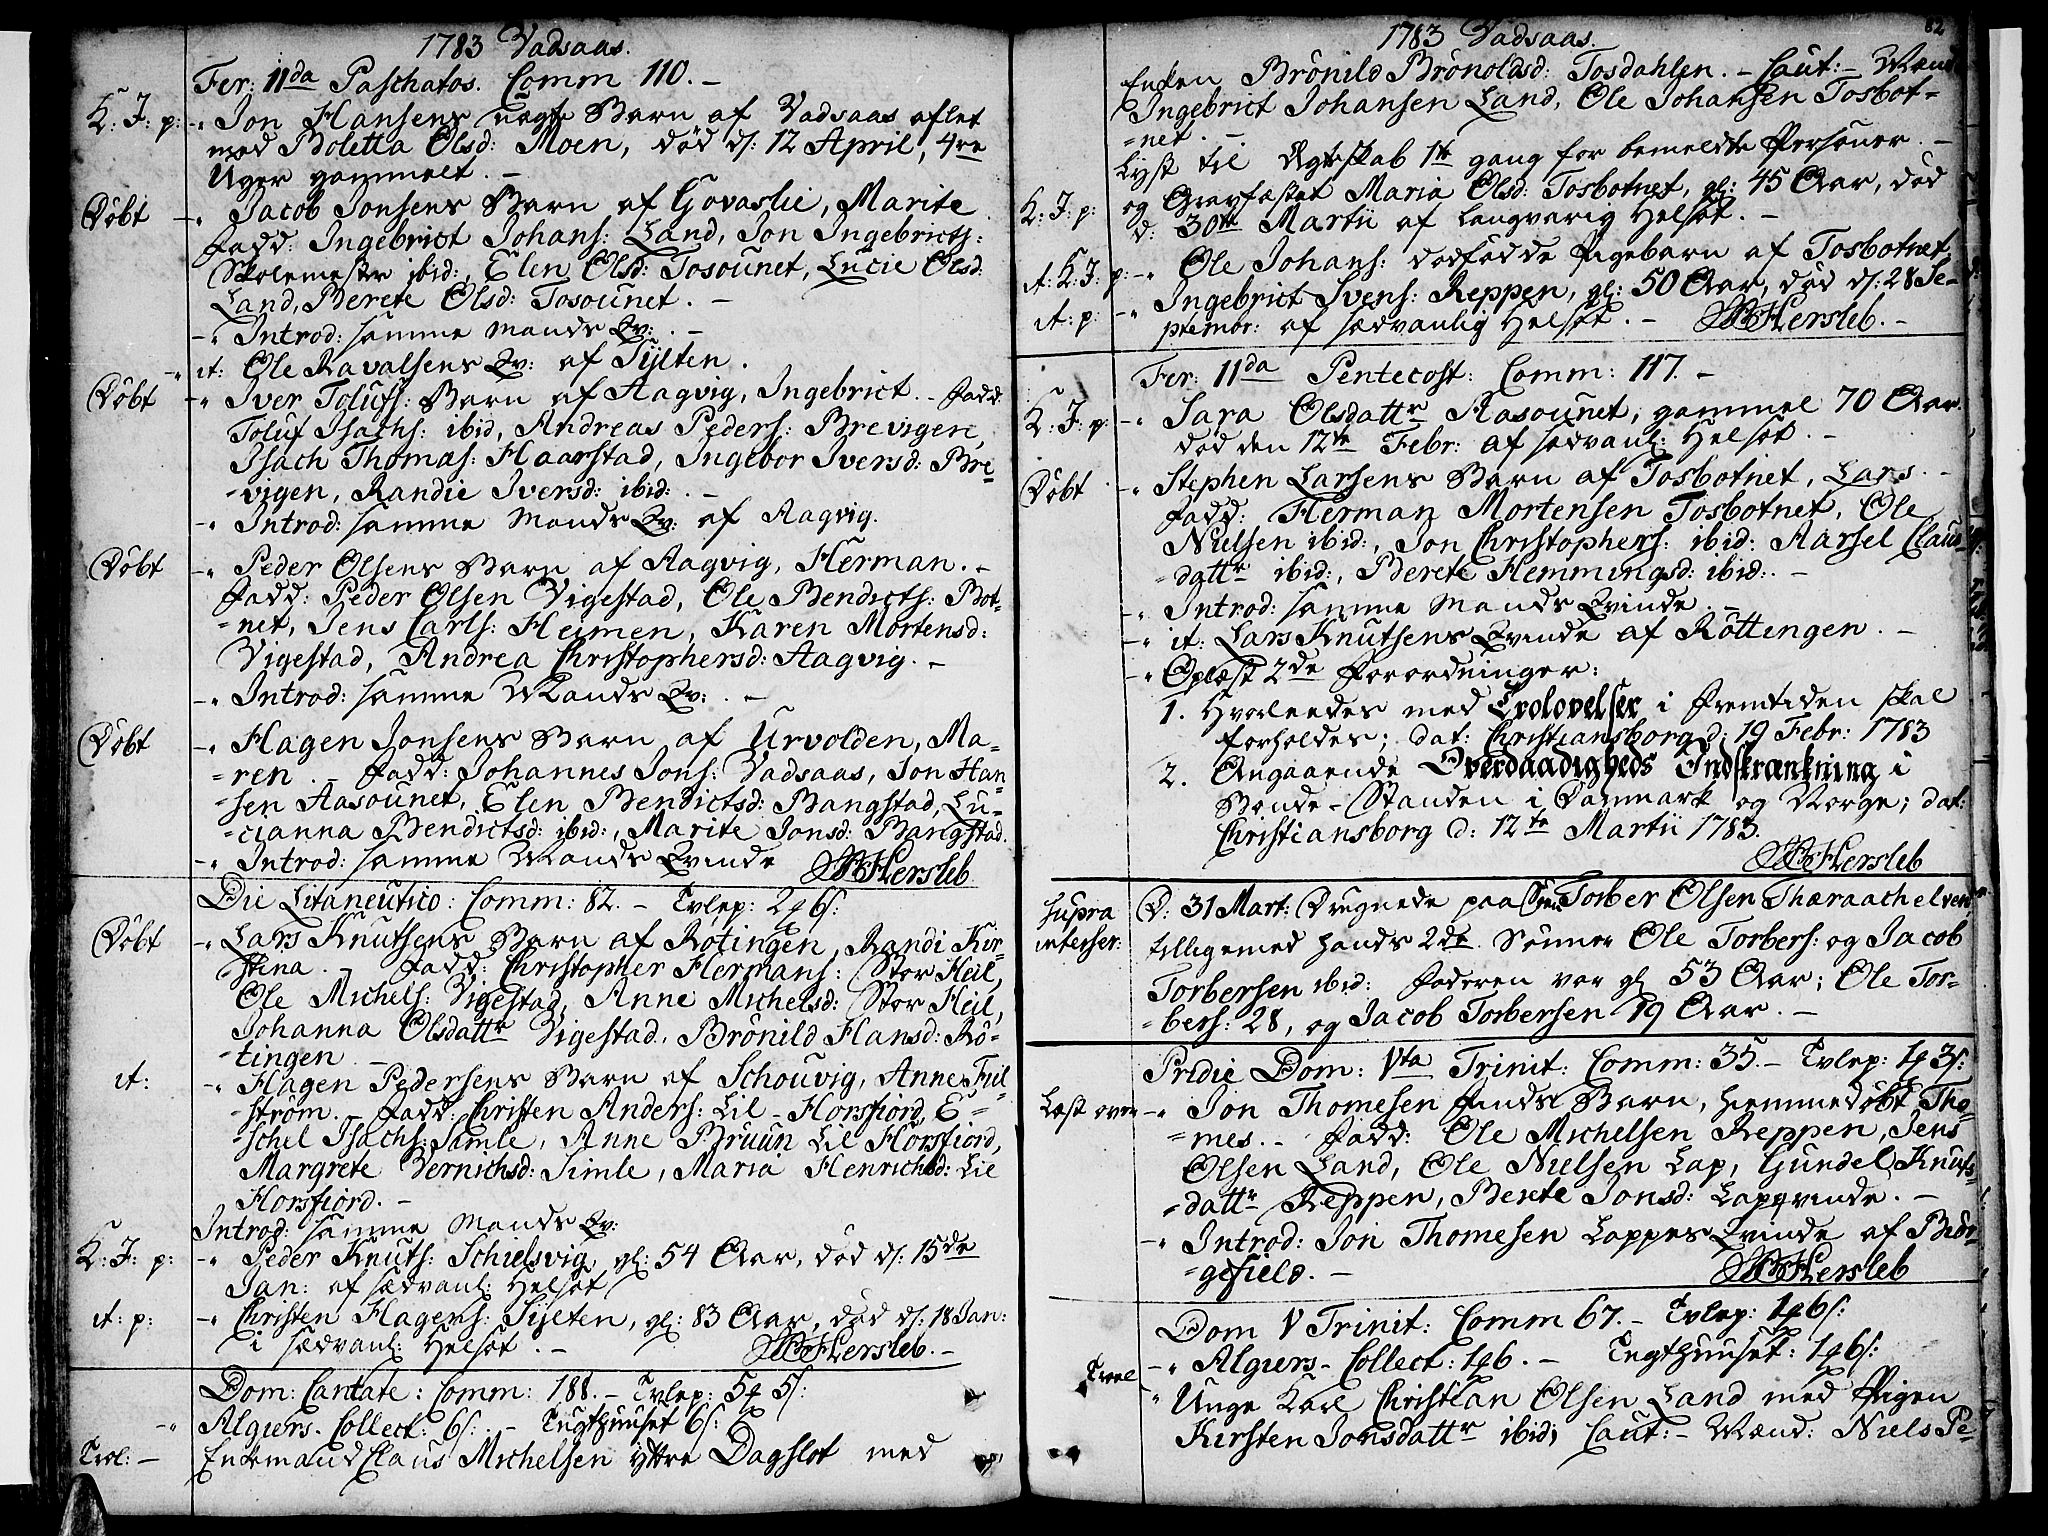 1783 Vadsaas.
Fer: 11da Paschatos. Comm 110. -
K: J: p: -" Jon Hansens uægte Barn af Vadsaas aflet
med Boletta Olsd: Moen, død d: 12 April, 4re
Uger gammelt. -
Døbt -" Jacob Jonsens Barn af Govaslie, Marite
Fadd: Ingebrict Johans: Land, Jon Ingebricts:
Skolemester ibid:, Elen Olsd: Tosounet, Lucie Olsd:
Land, Berete Olsd: Tosounet. -
-" Introd: samme Mands Qv: . -
-" it: Ole Ravalsens Qv: af Sylten.
Døbt -" Iver Tolufs: Barn af Aagvig, Ingebrict. - Fadd:
Toluf Isachs: ibid, Andreas Peders: Brevigen,
Isach Thomæs: Haarstad, Ingebor Iversd: Bre-
-vigen, Randie Iversd: ibid: . -
-" Introd: samme Mands Qv: af Aagvig.
Døbt -" Peder Olsens Barn af Aagvig, Herman. -
Fadd: Peder Olsen Vigestad, Ole Bendicts: Bot-
-net, Jens Carls: Heimen, Karen Mortensd:
Vigestad, Andrea Christophersd: Aagvig. -
-" Introd: samme Mands Qv: . -
Døbt -" Hagen Jonsens Barn af Urvolden, Ma-
-ren. - Fadd: Johannes Jons: Vadsaas, Jon Han-
-sen Aasounet, Elen Bendictsd: Bangstad, Lu-
-cianna Bendictsd: ibid:, Marite Jonsd: Bangstad.
-" Introd: samme Mands Qvinde HBHersleb
Die Litaneutico: Comm: 82. - Tvlep: 2 q 6 s:
Døbt -" Lars Knutsens Barn af Røtingen, Randi Kir-
stina. - Fadd: Christopher Hermans: Stor Heil,
Ole Michels: Vigestad, Anne Michelsd: Stor Heil,
Johanna Olsdattr Vigestad, Brønild Hansd: Rø-
-tingen. -
it: -" Hagen Pedersens Barn af Schouvig, Anne Fiil-
-strøm. - Fadd: Christen Anders: Lil-Horsfiord, E-
-schel Isachs: Simle, Anne Bruun Lil Horsfiord,
Margrete Bernichsd: Simle, Maria Henrichsd: Lil
Horsfiord. -
Introd: samme Mands Qv:
K: J: p: -" Peder Knuts: Schielsvig, gl: 54 Aar, død d: 15de
Jan: af sædvanl: Helsot
it: p: -" Christen Hagens: Sylten, gl: 83 Aar, død d: 18 Jan:
i sædvanl: Helsot. - HBHersleb. -
Dom: Cantate: Comm: 188. - Tvlep: 5 q 5 s:
-" Algiers-Collect: 6 s: . - Tugthuuset 6 s:
Trol: - Enkemand Claus Michelsen Yttre Dagslot med
82
1783 Vadsaas.
Enken Brønild Brønoldsd: Tosdahlen. - Caut: - Mænd
Ingebrict Johansen Land, Ole Johansen Tosbot-
=net. -
Lyst til Ægteskab 1te gang for bemeldte Personer. -
K: J: p: og Gravfæstet Maria Olsd: Tosbotnet, gl: 45 Aar, død
d: 30te Martii af langvarig Helsot. -
it: K: J: p: -" Ole Johans: dødfødde Pigebarn af Tosbotnet,
it: p: -" Ingebrict Svens: Reppen, gl: 50 Aar, død d: 28 Se-
ptembr: af sædvanlig Helsot. - HBHersleb. -
Fer: 11da Pentecost: Comm: 117. -
K: J: p: -" Sara Olsdattr Aasounet, gammel 70 Aar
død den 12te Febr: af sædvanl: Helsot. -
Døbt -" Stephen Larsens Barn af Tosbotnet, Lars. -
Fadd: Herman Mortensen Tosbotnet, Ole
Nielsen ibid:, Jon Christophers: ibid: Aarsel Claus-
=dattr ibid:, Berete Hemmingsd: ibid: . -
-" Introd: samme Mands Qvinde. -
-" it: Lars Knutsens Qvinde af Røttingen. -
-" Oplæst 2de Forordninger:
1. Hvorleedes med Trolovelser i Fremtiden skal
forholdes; dat: Christiansborg d: 19 Febr: 1783
2. Angaaende Overdaadigheds Indskrænkning i
Bonde-Standen i Danmark og Norge; dat:
Christiansborg d: 12te Martii 1783.
HBHersleb
supra interser: D: 31 Mart: Drugnede paa Søen Torber Olsen Thæraachelven
tilligemed hands 2de Sønner Ole Torbers: og Jacob
Torbersen ibid: Faderen var gl 53 Aar; Ole Tor-
-bers: 28, og Jacob Torbersen 19 Aar. -
Pridie Dom: Vta Trinit: Comm: 35. - Tvlep: 1 q 3 s:
Læst over -" Jon Thomesen Finds Barn, hiemmedøbt Tho-
=mes. - Fadd: Ole Michelsen Reppen, Jens
Olsen Land, Ole Nielsen Lap, Gundel Knuts-
=dattr Reppen, Berete Jonsd: Lapqvinde. -
-" Introd: Jon Thomesen Lappes Qvinde af Biør-
=gefield. - HBHersleb
Dom V Trinit: Comm 67. - Tvlep: 1 q 6 s:
-" Algiers-Collect: 1 q 6. - Tugthuuset: 1 q 6 s:
Trol " Unge Karl Christian Olsen Land med Pigen
Kirsten Jonsdattr ibid; Caut: - Mænd: Niels Pe-